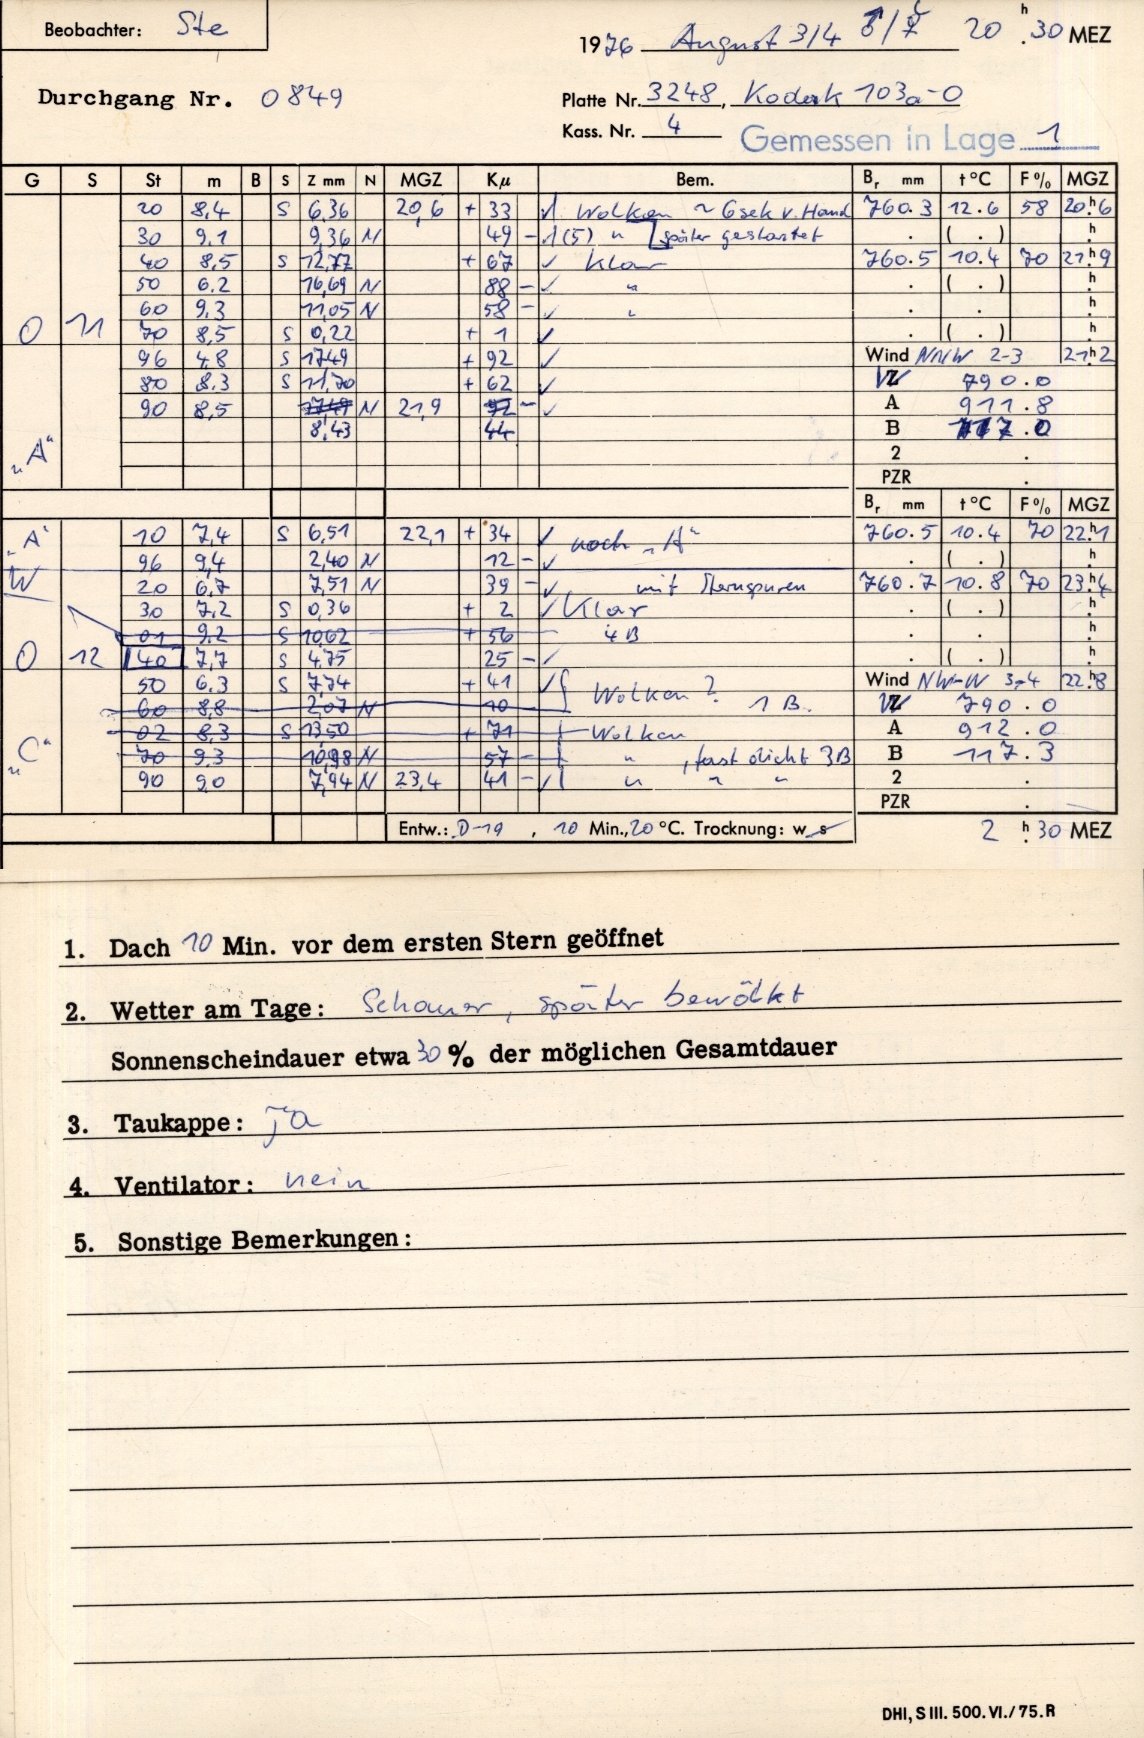 Beobachter: Ste
1976 August 3/4 ♂/☿ 20 h.30 MEZ
Durchgang Nr. 0849
Platte Nr. 3248, Kodak 103a-O
Kass. Nr. 4 Gemessen in Lage 1
G S St m B S Z mm N MGZ Kμ Bem. Br mm t °C F% MGZ
20 8,4 S 6,36 20,6 + 33 √ Wolken ~ 6sek v. Hand 760.3 12.6 58 20h6
30 9,1 9,36 N 49 - √(5) " später gestartet . ( . ) h
40 8,5 S 12,77 + 67 √ Klar 760.5 10.4 70 21h9
50 6.2 16,69 N 88 - √ " . ( . ) h
60 9,3 11,05 N 58 - √ " . . h
O 11 70 8,5 S 0,22 + 1 √ . ( . ) h
96 4,8 S 17,49 + 92 √ Wind NNW 2-3 21h2
80 8.3 S 11,70 + 62 √ VZ 790.0
90 8,5 17,49 N 21,9 92 - √ A 911.8
8,43 44 B 117.0
"A" 2 .
PZR .
Br mm t °C F% MGZ
"A" 10 7,4 S 6,51 22,1 + 34 √ noch "A" 760.5 10.4 70 22h1
96 9,4 2,40 N 12 - √ . ( . ) h
W 20 6,7 7,51 N 39 - √ mit Sternspuren 760.7 10.8 70 23h4
30 7,2 S 0,36 + 2 √ Klar . ( . ) h
01 9,2 S 10,62 + 56 4 B . . h
O 12 40 7,7 S 4,75 25 - √ . ( . ) h
50 6.3 S 7,74 + 41 √ Wolken ? Wind NW-W 3-4 22h8
60 8,8 2,07 N 10 1 B. VZ 790.0
02 8,3 S 13,50 + 71 Wolken A 912.0
"C" 70 9.3 10,98 N 57 - " , fast dicht 3B B 117.3
90 9,0 7,94 N 23,4 41 - √ " " " 2 .
PZR .
Entw.: D-19 , 10 Min., 20 °C. Trocknung: w s 2 h.30 MEZ
1. Dach 10 Min. vor dem ersten Stern geöffnet
2. Wetter am Tage: Schauer, später bewölkt
Sonnenscheindauer etwa 30 % der möglichen Gesamtdauer
3. Taukappe: ja
4. Ventilator: nein
5. Sonstige Bemerkungen:
DHI, S III. 500. VI./75. R